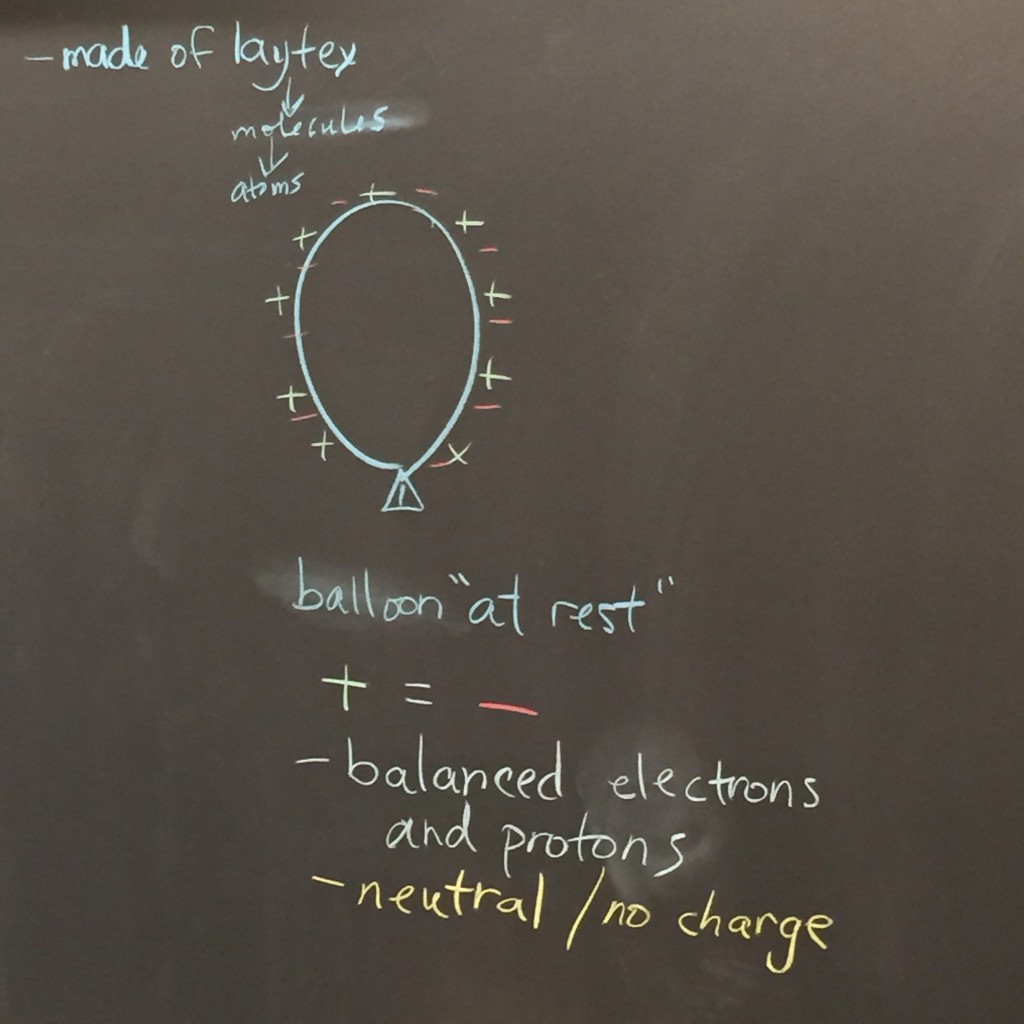 - made of laytex
molecules
atoms
balloon "at rest"
+ = -
- balanced electrons
and protons
- neutral / no charge